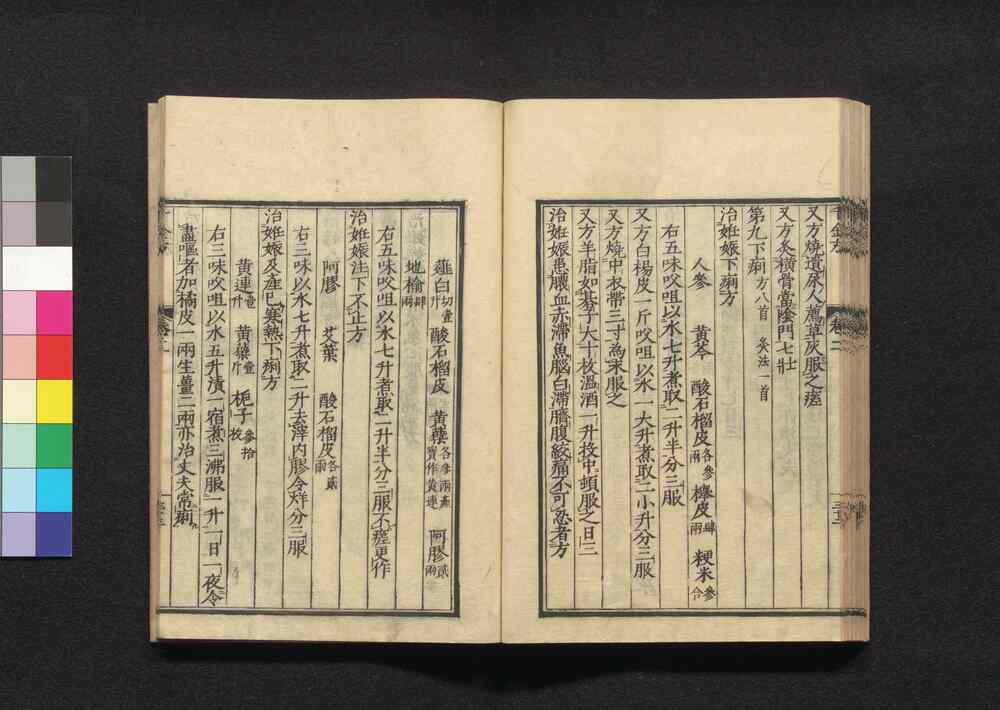 又方燒遺尿人薦草灰服之瘥
又方灸橫骨當陰門七壯
第九下痢方八首 灸法一首
治姙娠下痢方
人參 黃芩 酸石榴皮各參兩 櫸皮肆兩 粳米參合
右五味㕮咀以水七升煮取二升半分三服
又方白楊皮一斤㕮咀以水一大升煮取二小升分三服
又方燒中衣帶三寸爲末服之
又方羊脂如棊子大十枚溫酒一升投中頓服之日三
治姙娠患膿血赤滯魚腦白滯臍腹絞痛不可忍者方
薤白切壹升 酸石榴皮 黃蘗各參兩産寶作黃連 阿膠貳兩
地榆肆兩
右五味㕮咀以水七升煮取二升半分三服不瘥更作
治姙娠注下不止方
阿膠 艾葉 酸石榴皮各貳兩
右三味以水七升煮取二升去滓内膠令烊分三服
治姙娠及産已寒熱下痢方
黃連壹升 黃蘗壹斤 梔子參拾枚
右三味㕮咀以水五升漬一宿煮三沸服一升一日一夜令
盡嘔者加橘皮一兩生薑二兩亦治丈夫常痢
卷二